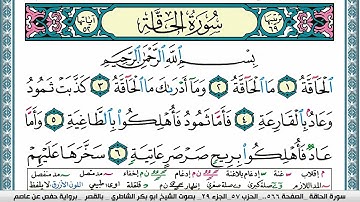 سُورَةُ الْحَاقَّةِ
بِسْمِ اللَّهِ الرَّحْمَٰنِ الرَّحِيمِ
الْحَاقَّةُ ١ مَا الْحَاقَّةُ ٢ وَمَا أَدْرَىٰكَ مَا الْحَاقَّةُ ٣ كَذَّبَتْ ثَمُودُ
وَعَادٌ بِالْقَارِعَةِ ٤ فَأَمَّا ثَمُودُ فَأُهْلِكُوا بِالطَّاغِيَةِ ٥ وَأَمَّا
عَادٌ فَأُهْلِكُوا بِرِيحٍ صَرْصَرٍ عَاتِيَةٍ ٦ سَخَّرَهَا عَلَيْهِمْ
سورة الحاقة - الصفحة ٥٦٦ - الحزب ٥٧ - الجزء ٢٩ بصوت الشيخ أبو بكر الشاطري - بالقصر - برواية حفص عن عاصم